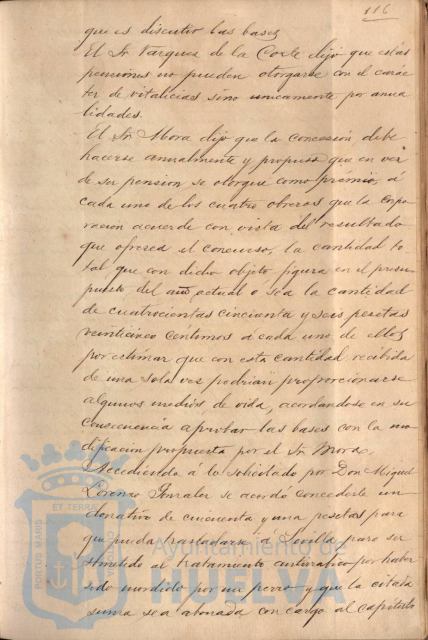 116
que es discutir las bases
El Sr Vazquez de la Corte dijo que estas
pensiones no pueden otorgarse con el carác
ter de vitalicias sino unicamente por anua
lidades.
El Sr Mora dijo que la concesión debe
hacerse anualmente y propuso que en vez
de ser pension se otorgue como prémio, á
cada uno de los cuatro obreros que la corpo
racion acuerde con vista del resultado
que ofrezca el concurso, la cantidad to
tal que con dicho objeto figura en el presu
puesto del año actual o sea la cantidad
de cuatrocientas cincuenta y seis pesetas
veinticinco centimos á cada uno de ellos
por estimar que con esta cantidad recibida
de una sola vez podrian proporcionarse
algunos medios de vida, acordandose en su
consecuencia aprobar las bases con la mo
dificacion propuesta por el Sr Mora.
Accediendo á lo solicitado por Don Miguel
Lorenzo se acordó concederle un
donativo de cincuenta y una pesetas para
que pueda trasladarse á Sevilla para ser
sometido al tratamiento antirrabico por haber
sido mordido por un perro y que la citada
suma sea abonada con cargo al capítulo
Ayuntamiento de
HUELVA
PORTUS MARIS
ET TERRA